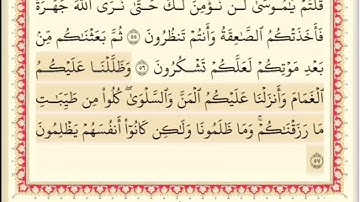 قُلْتُمْ يَٰمُوسَىٰ لَن نُّؤْمِنَ لَكَ حَتَّىٰ نَرَى ٱللَّهَ جَهْرَةً
فَأَخَذَتْكُمُ ٱلصَّٰعِقَةُ وَأَنتُمْ تَنظُرُونَ ٥٥ ثُمَّ بَعَثْنَٰكُم مِّنۢ
بَعْدِ مَوْتِكُمْ لَعَلَّكُمْ تَشْكُرُونَ ٥٦ وَظَلَّلْنَا عَلَيْكُمُ
ٱلْغَمَامَ وَأَنزَلْنَا عَلَيْكُمُ ٱلْمَنَّ وَٱلسَّلْوَىٰ ۖ كُلُوا۟ مِن طَيِّبَٰتِ
مَا رَزَقْنَٰكُمْ ۖ وَمَا ظَلَمُونَا وَلَٰكِن كَانُوٓا۟ أَنفُسَهُمْ يَظْلِمُونَ
٥٧